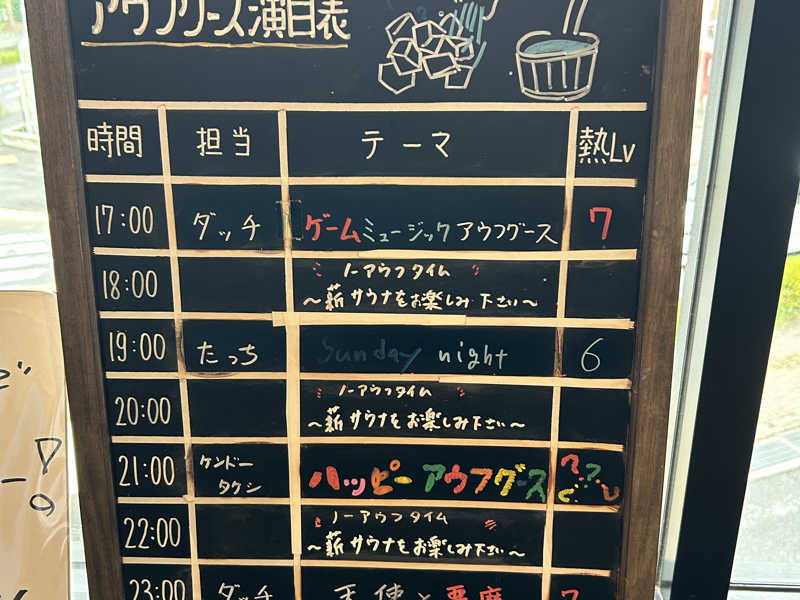 アウフグース演目表
時間 担当 テーマ 熱Lv
17:00 ダッチ ゲームミュージックアウフグース 7
18:00 ノーアウフタイム
～薪サウナをお楽しみ下さい～
19:00 たっち Sunday night 6
20:00 ノーアウフタイム
～薪サウナをお楽しみ下さい～
21:00 ケンドー
タケシ ハッピーアウフグース ???
22:00 ノーアウフタイム
～薪サウナをお楽しみ下さい～
23:00 ダッチ 天使×悪魔